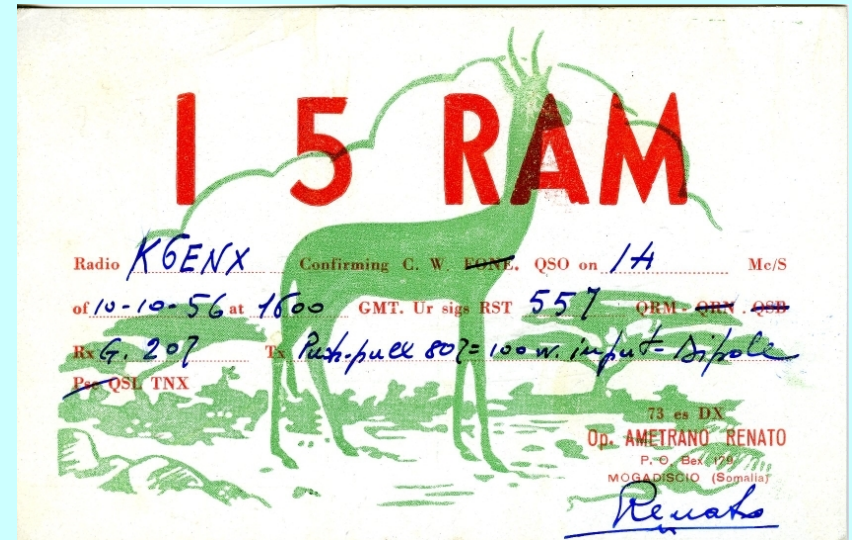 I 5 RAM
Radio K6ENX Confirming C. W. FONE. QSO on 14 Mc/S
of 10-10-56 at 1600 GMT. Ur sigs RST 557 QRM - QRN - QSB
Rx G. 207 Tx Push-pull 807= 100 w. input - Dipole
Pse QSL TNX
73 es DX
Op. AMETRANO RENATO
P. O. Box 179
MOGADISCIO (Somalia)
Renato